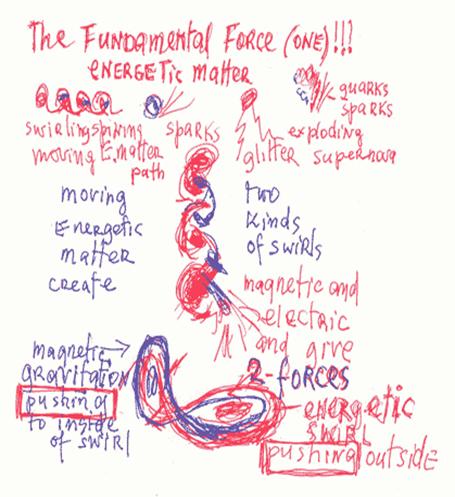 The Fundamental Force (one)!!!
energetic matter
quarks
sparks
swirling spining
moving E.matter
path
sparks
exploding
glitter supernova
moving
Energetic
matter
create
two
kinds
of swirls
magnetic and
electric
and give
2-forces
magnetic
gravitation
pushing
to inside
of swirl
energetic
swirl
pushing outside